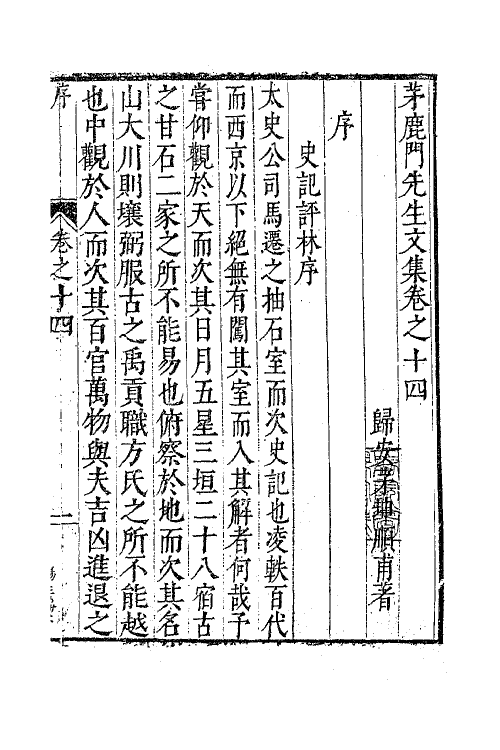 茅鹿門先生文集卷之十四
歸安茅坤順甫著
序
史記評林序
太史公司馬遷之抽石室而次史記也凌軼百代
而西京以下絕無有闖其室而入其解者何哉子
嘗仰觀於天而次其日月五星三垣二十八宿古
之甘石二家之所不能易也俯察於地而次其名
山大川則壤弼服古之禹貢職方氏之所不能越
也中觀於人而次其百官萬物與夫吉凶進退之
序
卷之十四
一